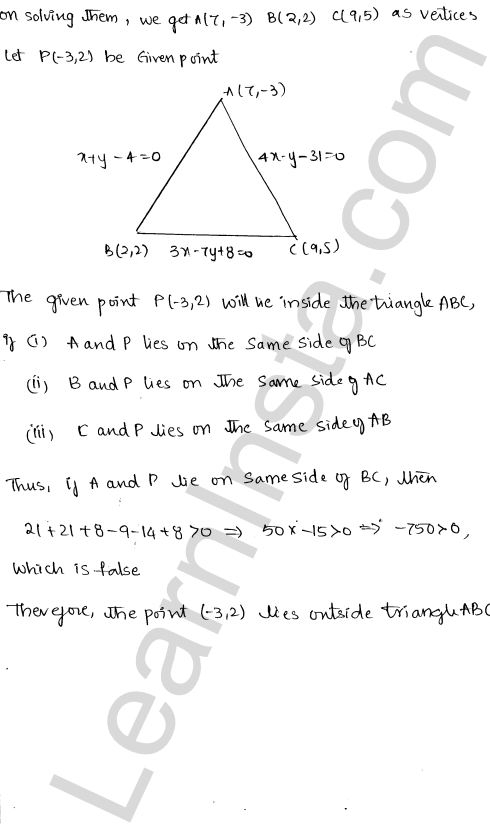 on solving them, we get A(7,-3) B(2,2) C(9,5) as vertices
Let P(-3,2) be Given point
A(7,-3)
x+y-4=0
4x-y-31=0
B(2,2) 3x-7y+8=0 C(9,5)
The given point P(-3,2) will lie inside the triangle ABC,
if (i) A and P lies on the same side of BC
(ii) B and P lies on the same side of AC
(iii) C and P lies on the same side of AB
Thus, if A and P lie on same side of BC, then
21+21+8-9-14+8>0 ⇒ 50x-15>0 ⇒ -750>0,
which is false
Therefore, the point (-3,2) lies outside triangle ABC
.
LearnInsta.com